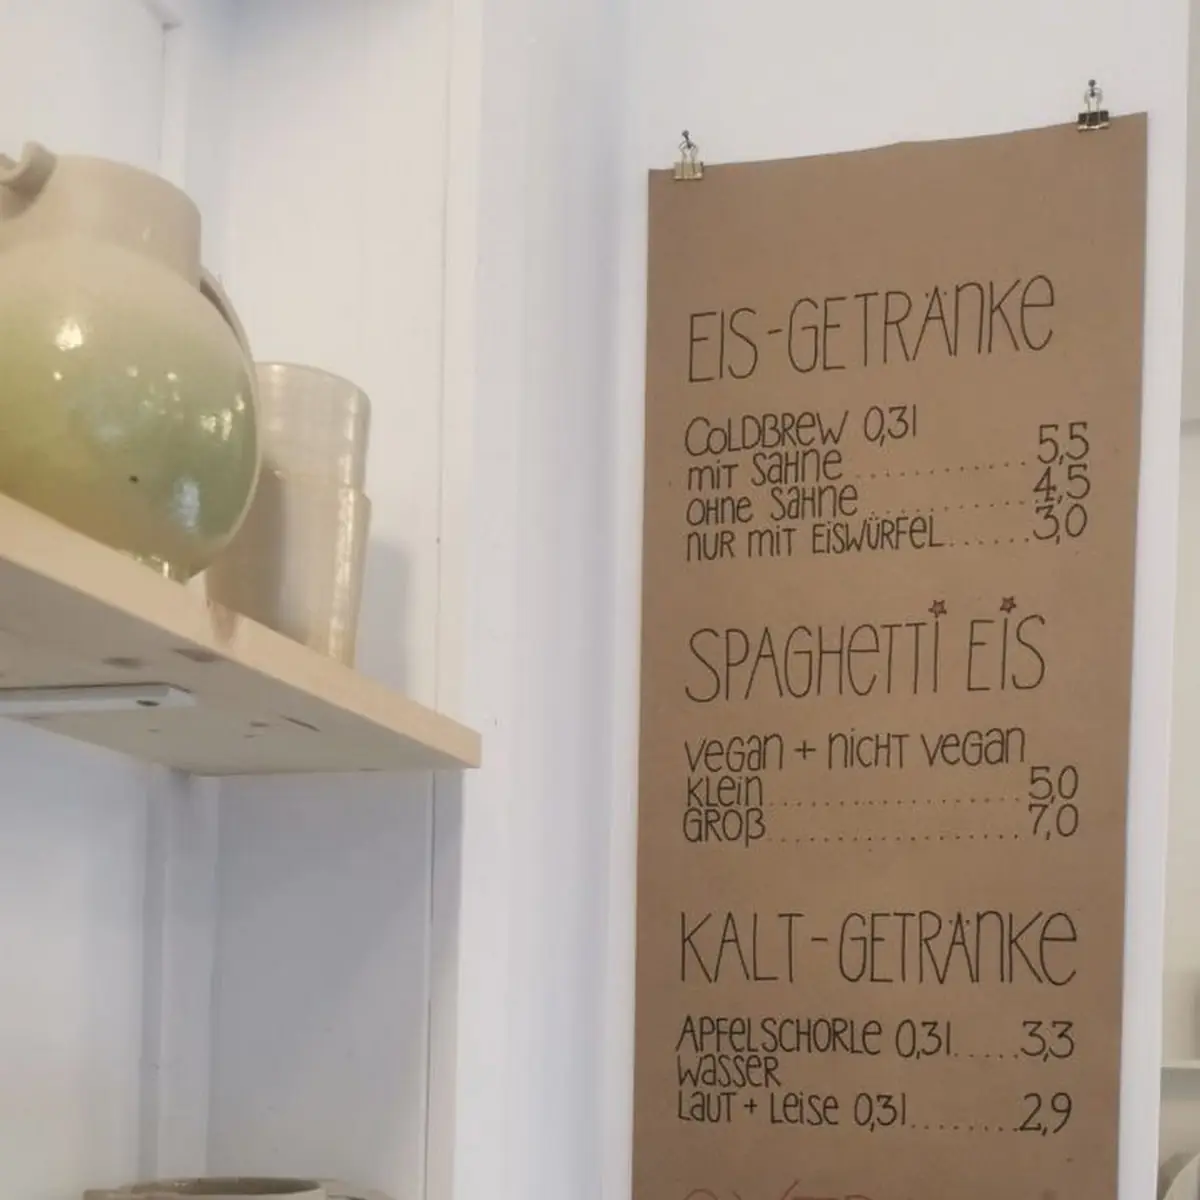 EIS-GETRÄNKE
COLDBREW 0,3l
MIT SAHNE ............ 5,5
OHNE SAHNE ............ 4,5
NUR MIT EISWÜRFEL ...... 3,0
SPAGHETTI EIS
VEGAN + NICHT VEGAN
KLEIN .................. 5,0
GROß .................. 7,0
KALT-GETRÄNKE
APFELSCHORLE 0,3l ..... 3,3
WASSER
LAUT + LEISE 0,3l ........ 2,9